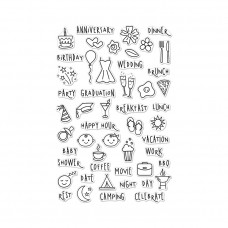 ANNIVERSARY DINNER
BIRTHDAY WEDDING
BRUNCH
PARTY GRADUATION
BREAKFAST LUNCH
HAPPY HOUR
VACATION
BABY WORK
SHOWER COFFEE BBQ
MOVIE
DATE NIGHT DAY
REST CAMPING CELEBRATE